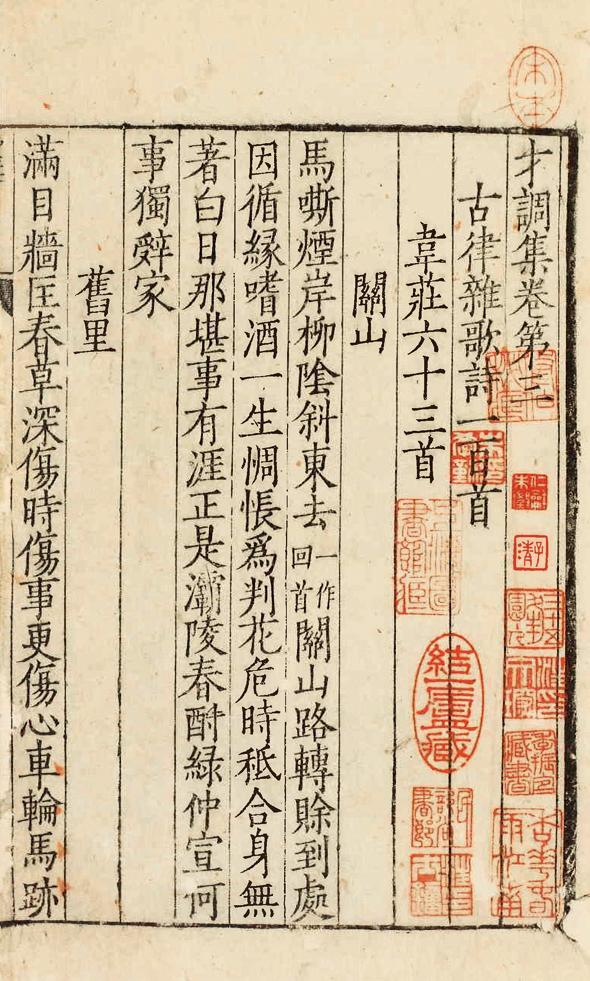 才調集卷第三
古律雜歌詩一百首
韋莊六十三首
關山
馬嘶煙岸柳隂斜東去一作回首關山路轉賒到處
因循縁嗜酒一生惆悵爲判花危時秪合身無
著白日那堪事有涯正是灞陵春酧綠仲宣何
事獨辤家
舊里
滿目牆匡春草深傷時傷事更傷心車輪馬跡
結廬藏